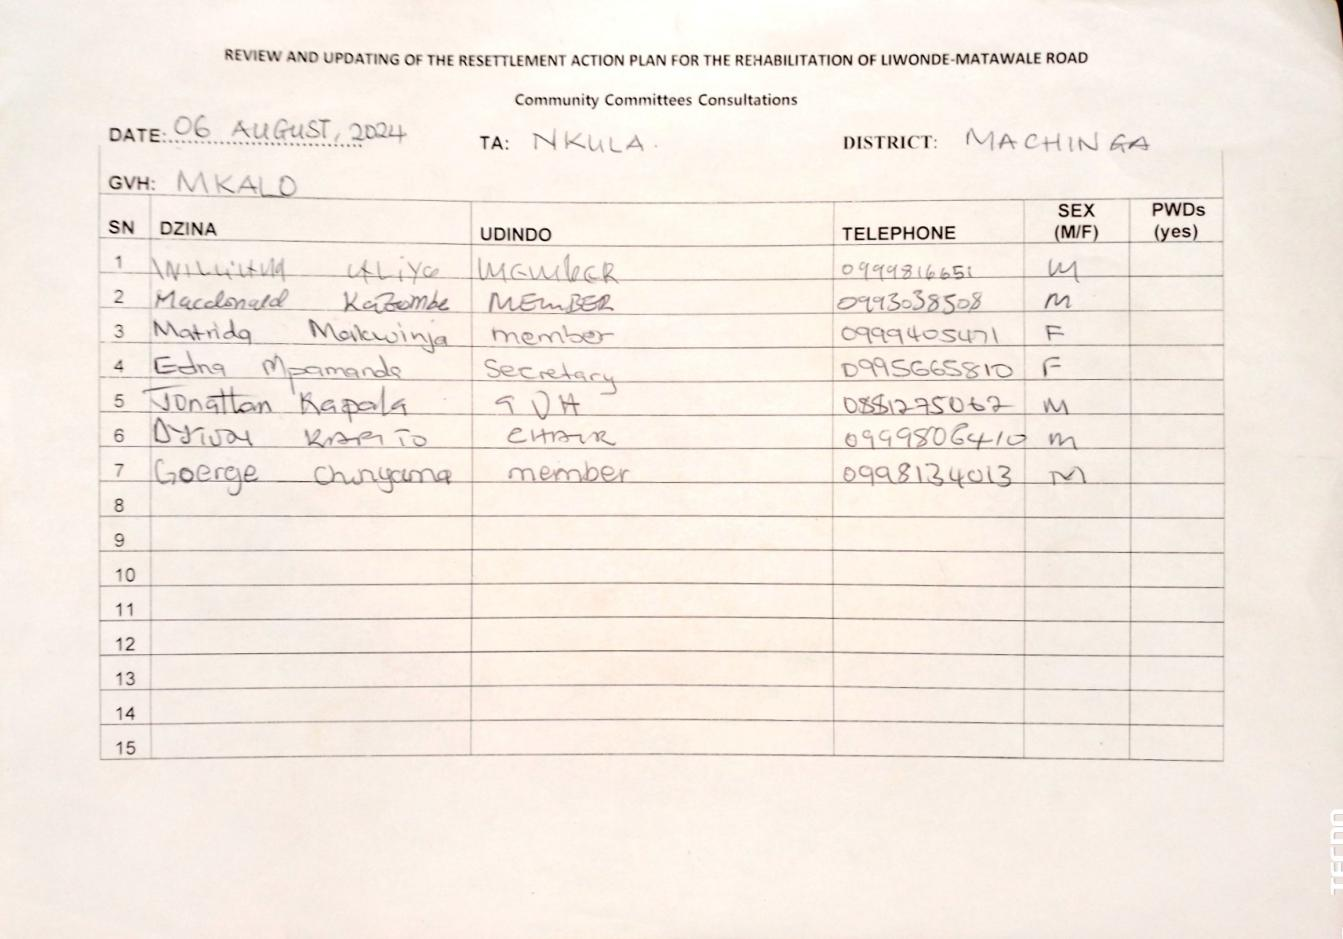 REVIEW AND UPDATING OF THE RESETTLEMENT ACTION PLAN FOR THE REHABILITATION OF LIWONDE-MATAWALE ROAD
Community Committees Consultations
DATE: 06 AUGUST, 2024 TA: NKULA. DISTRICT: MACHINGA
GVH: MKALO
SN DZINA UDINDO TELEPHONE SEX (M/F) PWDs (yes)
1 member 0999816651 M
2 Macdonald Kazombe MEMBER 0993038508 M
3 Matrida Makwinja member 0999405471 F
4 Edna Mpamande Secretary 0995665810 F
5 Jonattan Kapala GVH 0881275062 M
6 KAPITO CHAIR 0999806410 m
7 Goerge Chinyama member 0998134013 M
8
9
10
11
12
13
14
15
TECNO